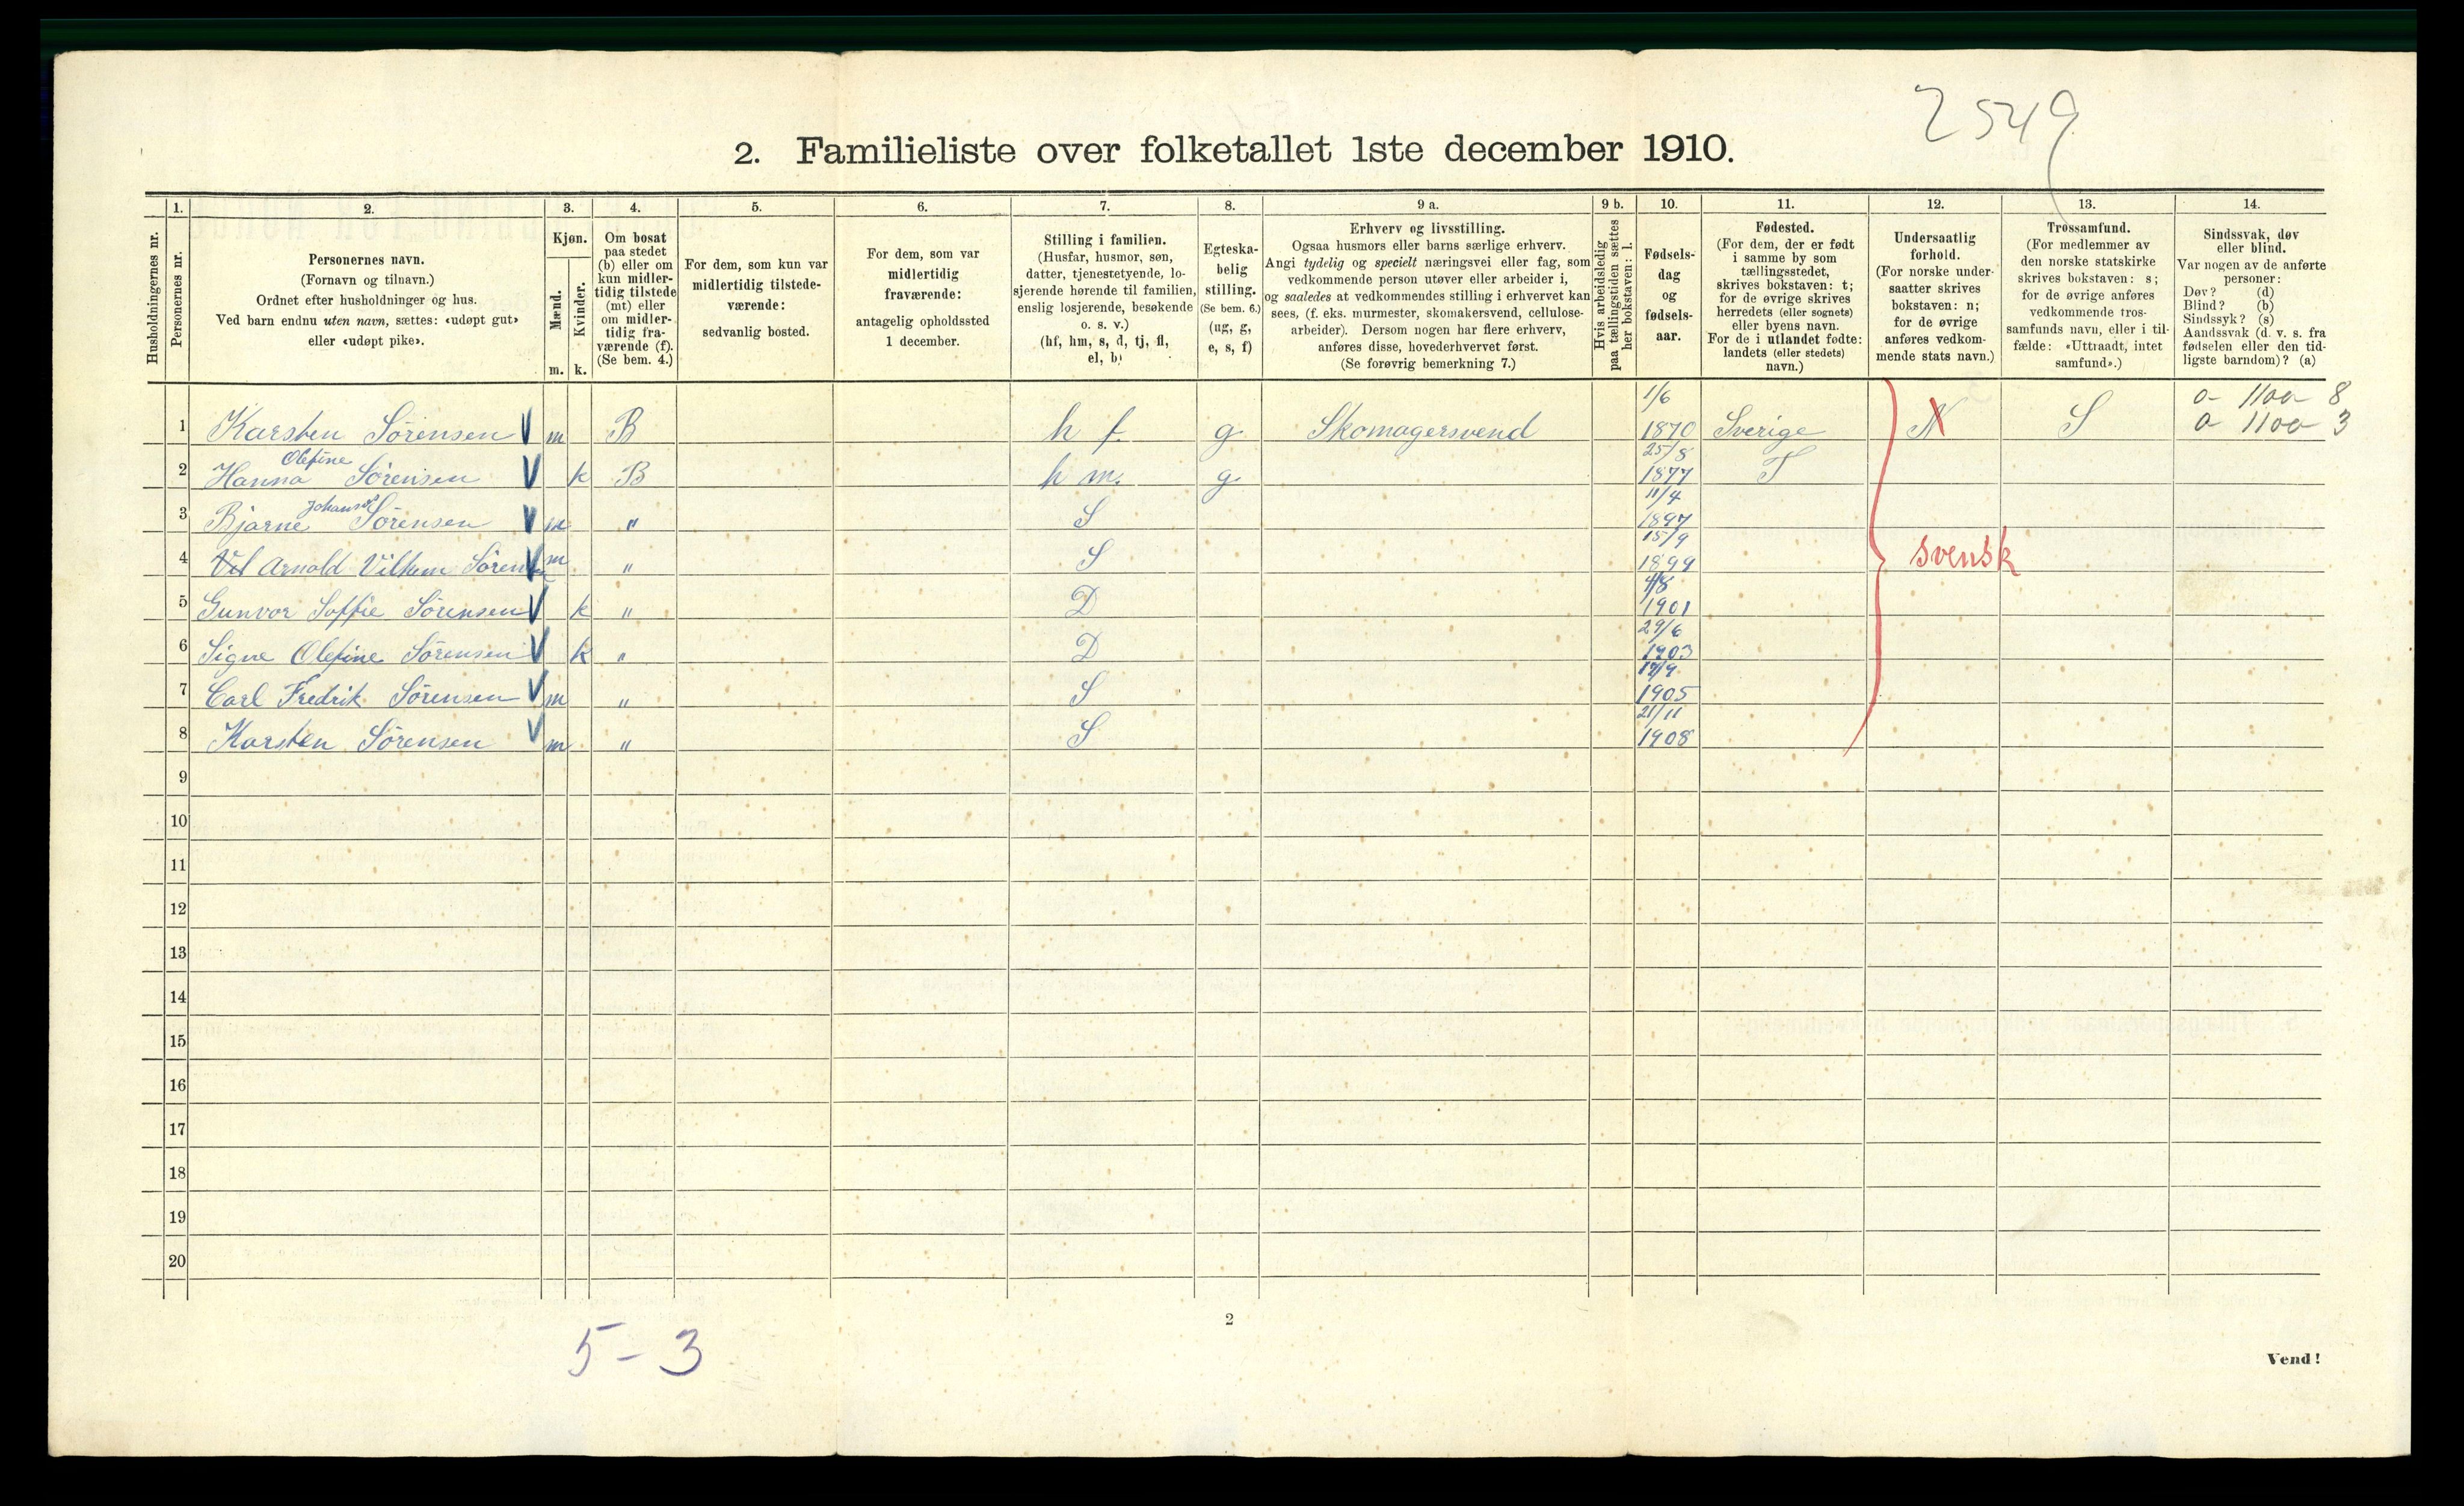 2549
2. Familieliste over folketallet 1ste december 1910.
Husholdningernes nr.
1. Personernes nr.
2. Personernes navn.
(Fornavn og tilnavn.)
Ordnet efter husholdninger og hus.
Ved barn endnu uten navn, sættes: «udøpt gut»
eller «udøpt pike».
3. Kjøn.
Mænd. m.
Kvinder. k.
4. Om bosat
paa stedet
(b) eller om
kun midler-
tidig tilstede
(mt) eller
om midler-
tidig fra-
værende (f).
(Se bem. 4.)
5. For dem, som kun var
midlertidig tilstede-
værende:
sedvanlig bosted.
6. For dem, som var
midlertidig
fraværende:
antagelig opholdssted
1 december.
7. Stilling i familien.
(Husfar, husmor, søn,
datter, tjenestetyende, lo-
sjerende hørende til familien,
enslig losjerende, besøkende
o. s. v.)
(hf, hm, s, d, tj, fl,
el, b)
8. Egteska-
belig
stilling.
(Se bem. 6.)
(ug, g,
e, s, f)
9 a. Erhverv og livsstilling.
Ogsaa husmors eller barns særlige erhverv.
Angi tydelig og specielt næringsvei eller fag, som
vedkommende person utøver eller arbeider i,
og saaledes at vedkommendes stilling i erhvervet kan
sees, (f. eks. murmester, skomakersvend, cellulose-
arbeider). Dersom nogen har flere erhverv,
anføres disse, hovederhvervet først.
(Se forøvrig bemerkning 7.)
9 b. Hvis arbeidsledig
paa tællingstiden sættes
her bokstaven: l.
10. Fødsels-
dag
og
fødsels-
aar.
11. Fødested.
(For dem, der er født
i samme by som
tællingsstedet,
skrives bokstaven: t;
for de øvrige skrives
herredets (eller sognets)
eller byens navn.
For de i utlandet fødte:
landets (eller stedets)
navn.)
12. Undersaatlig
forhold.
(For norske under-
saatter skrives
bokstaven: n;
for de øvrige
anføres vedkom-
mende stats navn.)
13. Trossamfund.
(For medlemmer av
den norske statskirke
skrives bokstaven: s;
for de øvrige anføres
vedkommende tros-
samfunds navn, eller i til-
fælde: «Uttraadt, intet
samfund».)
14. Sindssvak, døv
eller blind.
Var nogen av de anførte
personer:
Døv? (d)
Blind? (b)
Sindssyk? (s)
Aandssvak (d. v. s. fra
fødselen eller den tid-
ligste barndom)? (a)
0- 1100- 8
0- 1100- 3
1 Karsten Sørensen m B h f. g. Skomagersvend 1/6 1870 Sverige N S
2 Hanna Olefine Sørensen k B h m. g. 25/8 1877 T
3 Bjarne Johansx Sørensen m " S 11/4 1897
4 Vil Arnold Vilhem Sørensen m " S 15/9 1899
svensk
5 Gunvor Soffie Sørensen k " D 4/8 1901
6 Signe Olefine Sørensen k " D 29/6 1903
7 Carl Fredrik Sørensen m " S 1905
8 Karsten Sørensen m " S 21/11 1908
9
10
11
12
13
14
15
16
17
18
19
20
2
5-3
Vend!